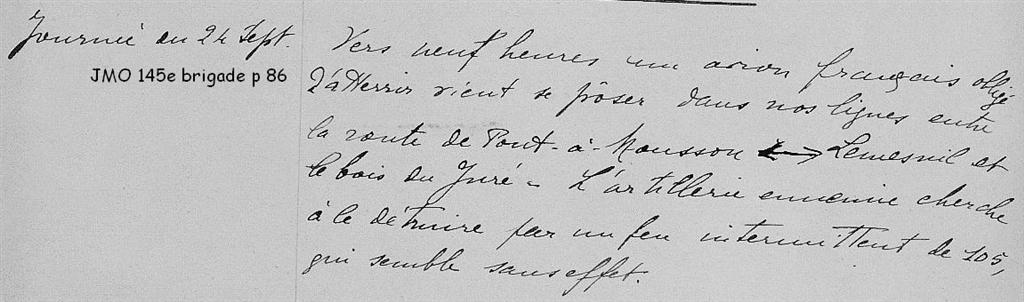 Journée du 24 Sept.
JMO 145e brigade p 86
Vers neuf heures un avion français obligé
d'atterrir vient se pôser dans nos lignes entre
la route de Pont-à-Mousson ⟷ Lemesnil et
le bois du Juré - L'artillerie ennemie cherche
à le détruire par un feu intermittent de 105,
qui semble sans effet.